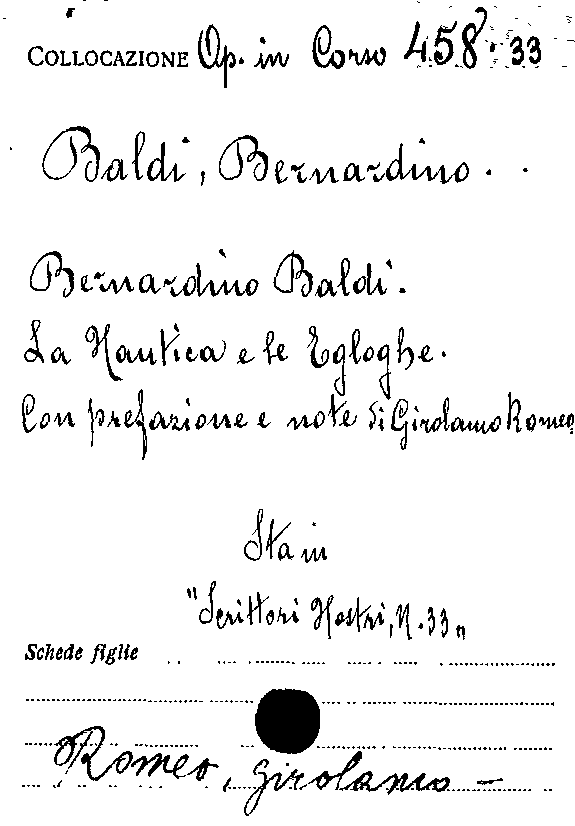 COLLOCAZIONE Op. in Corso 458.33
Baldi, Bernardino.
Bernardino Baldi.
La Nautica e le Egloghe.
Con prefazione e note di Girolamo Romeo
Sta in
"Scrittori Nostri, N. 33"
Schede figlie
Romeo, Girolamo —